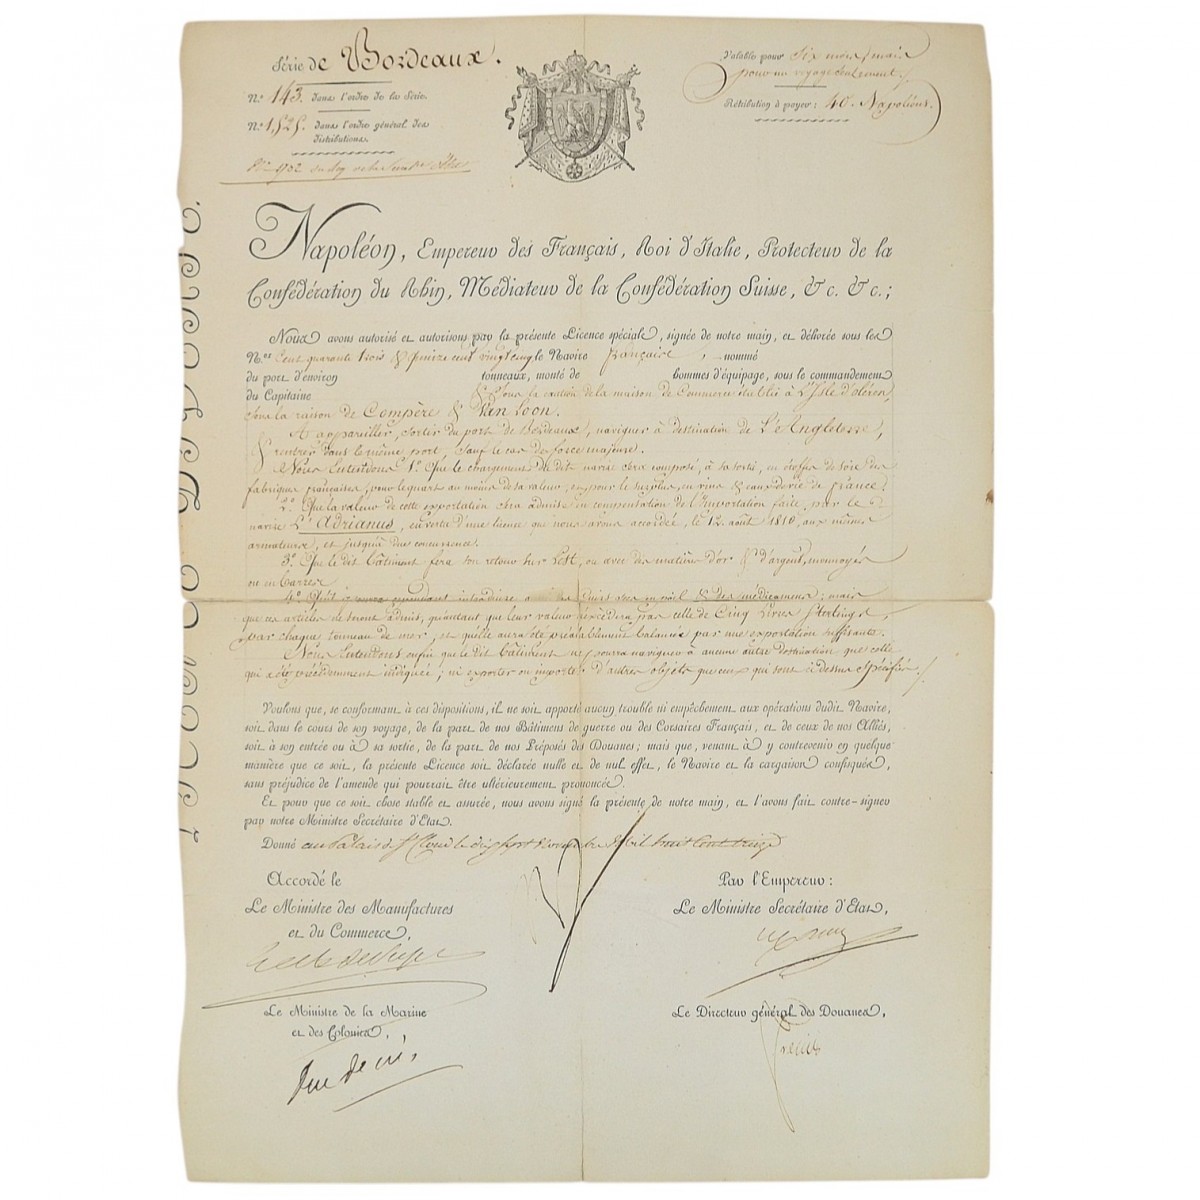 Série de Bordeaux.
N.º 143. dans l'ordre de la Série.
N.º 1,525. dans l'ordre général des
Distributions.
Valable pour Six mois, mais
pour un voyage seulement.
Rétribution à payer : 40. Napoléons.
Napoléon, Empereur des Français, Roi d'Italie, Protecteur de la
Confédération du Rhin, Médiateur de la Confédération Suisse, &c. &c.;
Nous avons autorisé et autorisons par la présente Licence spéciale, signée de notre main, et délivrée sous les
N.os Cent quarante trois & quinze cent vingt cinq le Navire française, nommé
du port d'environ tonneaux, monté de hommes d'équipage, sous le commandement
du Capitaine & sous la caution de la maison de Commerce établie à L'Isle d'oléron,
sous la raison de Compère & Van Loon.
A appareiller, sortir du port de Bordeaux, naviguer à destination de L'Angleterre,
& rentrer dans le même port, sauf le cas de force majeure.
Nous Entendons 1.º Que le chargement du dit navire sera composé, à sa sortie, en étoffes de soie des
fabriques françaises, pour le quart au moins de sa valeur; en, pour le surplus, en vins & eaux de vie de france;
2.º Que la valeur de cette exportation sera admise en compensation de l'importation faite par le
navire L'Adrianus, en vertu d'une licence que nous avons accordée, le 12. août 1810, aux mêmes
armateurs, et jusqu'à due concurrence.
3.º Que le dit bâtiment fera son retour sur Lest, ou avec des matières d'or & d'argent, monnoyés
ou en barres
4.º Qu'il pourra cependant introduire des en poil & des médicamens; mais
que ces articles ne seront admis, qu'autant que leur valeur n'excèdera pas celle de Cinq Livres Sterlings
par chaque tonneau de mer, et qu'elle aura été préalablement balancée par une exportation suffisante.
Nous Entendons enfin que le dit bâtiment ne pourra naviguer à aucune autre destination que celle
qui a été précédemment indiquée; ni exporter ou importer d'autres objets que ceux qui sont ci dessus spécifiés.
Voulons que, se conformant à ces dispositions, il ne soit apporté aucun trouble ni empêchement aux opérations dudit Navire,
soit dans le cours de son voyage, de la part de nos Bâtimens de guerre ou des Corsaires Français, et de ceux de nos Alliés,
soit à son entrée ou à sa sortie, de la part de nos Préposés des Douanes; mais que, venant à y contrevenir en quelque
manière que ce soit, la présente Licence soit déclarée nulle et de nul effet, le Navire et la cargaison confisqués,
sans préjudice de l'amende qui pourrait être ultérieurement prononcée.
Et pour que ce soit chose stable et assurée, nous avons signé la présente de notre main, et l'avons fait contre-signer
par notre Ministre Secrétaire d'Etat.
Donné au Palais de St. Cloud le dix sept Novembre Mil huit Cent treize
Accordé le
Le Ministre des Manufactures
et du Commerce,
Le Ministre de la Marine
et des Colonies,
Par l'Empereur :
Le Ministre Secrétaire d'Etat,
Le Directeur général des Douanes,